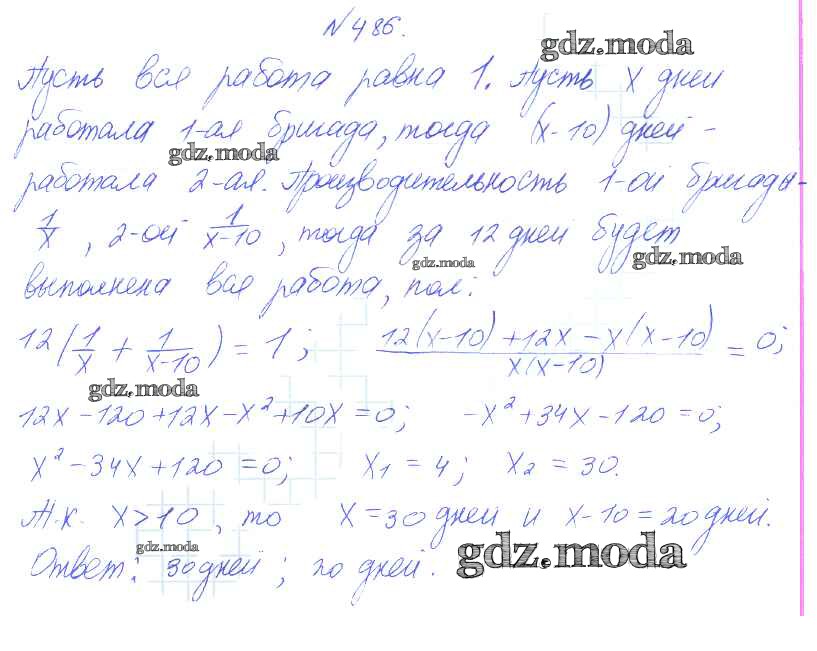 №486.
gdz.moda
Пусть вся работа равна 1. Пусть x дней
работала 1-ая бригада, тогда (x-10) дней -
gdz.moda
работала 2-ая. Производительность 1-ой бригады-
1/x, 2-ой 1/(x-10), тогда за 12 дней будет
gdz.moda
gdz.moda
выполнена вся работа, пол:
12(1/x + 1/(x-10)) = 1; (12(x-10)+12x-x(x-10))/(x(x-10)) = 0;
gdz.moda
12x-120+12x-x²+10x=0; -x²+34x-120=0;
x²-34x+120=0; x₁=4; x₂=30.
Т.к. x>10, то x=30 дней и x-10=20 дней.
gdz.moda
gdz.moda
Ответ: 30 дней; 20 дней.